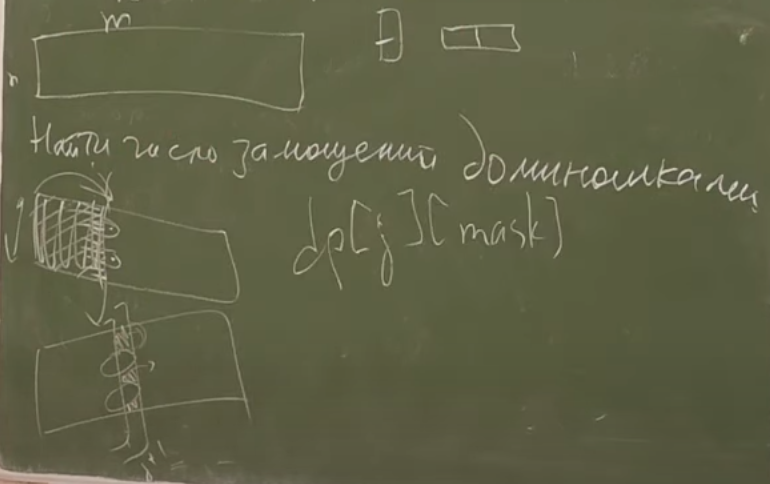 m
n
Найти число замощений доминошками
dp[j][mask]